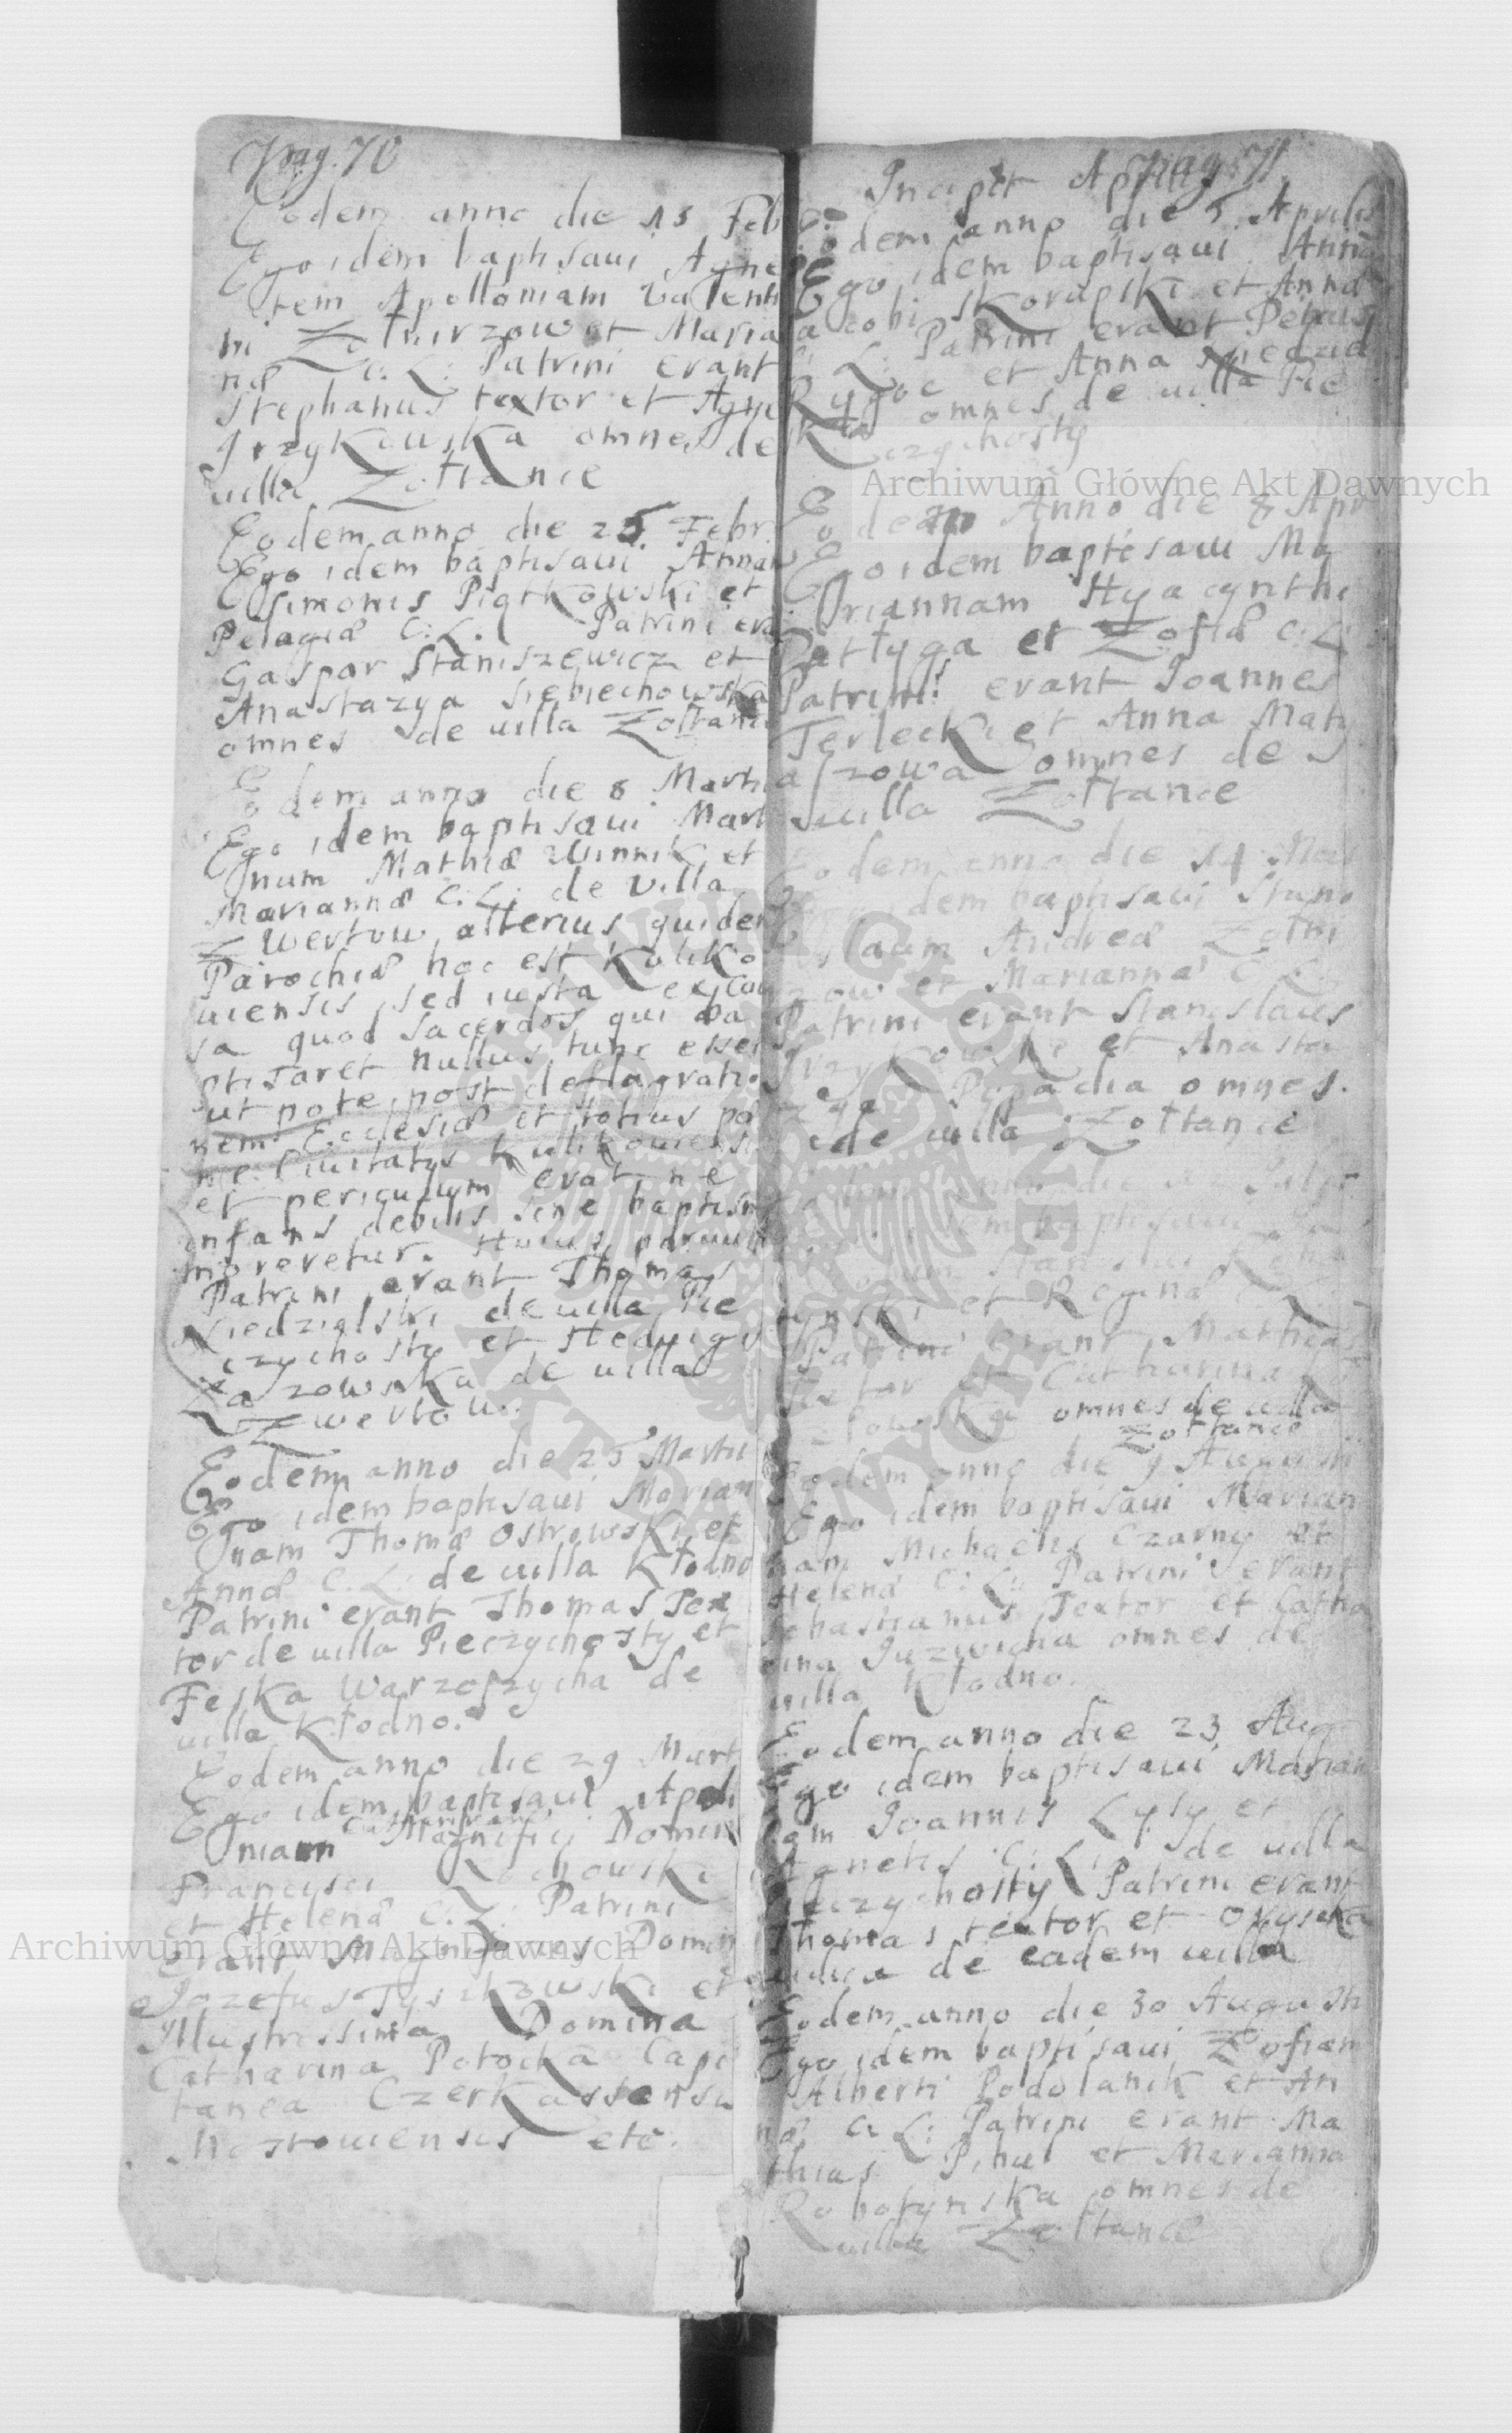 Pag. 70
Eodem anno die 13 Feb
Ego idem baptisaui Agne
tem Apolloniam Valenti
ni Zołnirzow et Maria
næ C: L: Patrini erant
Stephanus textor et Agne
Grzykowska omnes de
uilla Zołtance
Eodem anno die 25 Febr.
Ego idem baptisaui Annam
Simonis Piątkowski et
Pelagiæ C: L. Patrini era
Gaspar Staniszewicz et
Anastazya Siebiechowska
omnes de uilla Zołtance
Eodem anno die 8 Martii
Ego idem baptisaui Marti
num Mathiæ Winnik et
Mariannæ C: L: de Villa
Zwertow alterius quidem
Parochiæ hoc est Kuliko
uiensis, sed iusta ex cau
sa quod sacerdos qui ba
ptisaret nullus tunc esset
ut pote post deflagratio
nem Ecclesiæ et totius pæ
ne Ciuitatys Kulikouiensi
et periculum erat ne
infans debilis sine baptism
moreretur. Huius paruuli
Patrini erant Thomas
Niedzialski de uilla Pie
czychosty et Heduigi
Zazowska de uilla
Zwertow.
Eodem anno die 25 Martii
Ego idem baptisaui Marian
nam Thomæ Ostrowski et
Annæ C. L: de uilla Kłodno
Patrini erant Thomas Tex
tor de uilla Pieczychosty et
Feska Warzoszycha de
uilla Kłodno.
Eodem anno die 29 Mart
Ego idem baptisaui Apol
niam Magnifici Domin
Francisci Rochowski
et Helenæ C. L: Patrini
erant Magnificus Domin
Jozefus Tyszkowski et
Illustrissima Domina
Catharina Potocka Capi
tanea Czerkassensis
Mostouiensis etc.
Pag. 71
Incipit Aprilis
Eodem anno die 5 Aprilis
Ego idem baptisaui Annã
Iacobi Skorupski et Annæ
C: L: Patrini erant Petrus
Rygoc et Anna
omnes de uilla Pie
czychosty
Eodem Anno die 8 Apr
Ego idem baptisaui Ma
riannam Hyacynthi
Pattyga et Zofiæ C: L:
Patrini erant Joannes
Terlecki et Anna Maty
aszowa omnes de
uilla Zołtance
Eodem anno die 14 Mai
Ego idem baptisaui Stani
slaum Andreæ Zołni
rzow et Mariannæ C L:
Patrini erant Stanislaus
Grzykowski et Anasta
zya Popadia omnes.
de uilla Zołtance
Eodem anno die 12 Julii
Ego idem baptisaui
Stanislai
et Reginæ C L:
Patrini erant Mathias
Textor et Catharina
omnes de uilla
Zołtance
Eodem anno die 9 Augusti
Ego idem baptisaui Marian
nam Michaelis Czarny et
Helenæ C: L: Patrini erant
Sebastianus Textor et Catha
rina Juzwicha omnes de
uilla Kłodno.
Eodem anno die 23 Aug
Ego idem baptisaui Marian
nam Joannis Łysy et
Agnetis C: L: de uilla
Pieczychosty Patrini erant
Thomas textor et Oryszka
de eadem uilla
Eodem anno die 30 Augusti
Ego idem baptisaui Zofiam
Alberti Podolanik et An
næ C: L: Patrini erant Ma
thias Pihul et Marianna
Robotynska omnes de
uilla Zołtance
Archiwum Główne Akt Dawnych
Archiwum Główne Akt Dawnych
ARCHIWUM GŁÓWNE AKT DAWNYCH